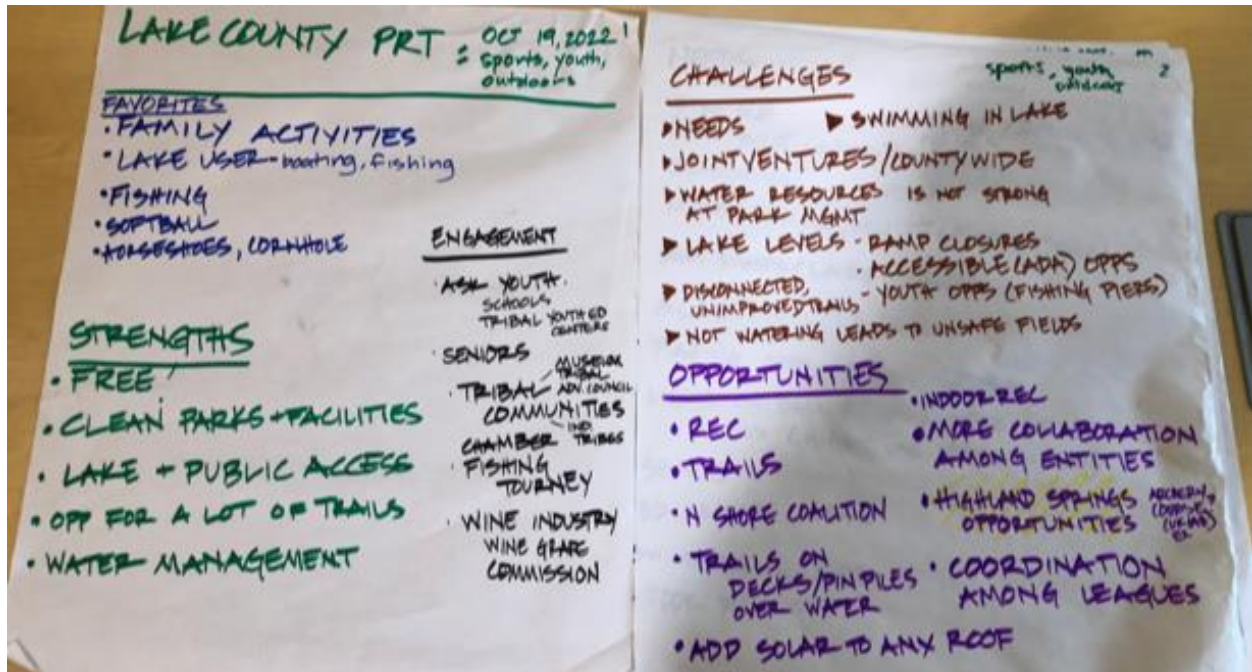 LAKE COUNTY PRT : OCT 19, 2022 1
sports, youth,
outdoors
FAVORITES
• FAMILY ACTIVITIES
• LAKE USER - boating, fishing
• FISHING
• SOFTBALL
• HORSESHOES, CORNHOLE
STRENGTHS
• FREE
• CLEAN PARKS + FACILITIES
• LAKE + PUBLIC ACCESS
• OPP FOR A LOT OF TRAILS
• WATER MANAGEMENT
ENGAGEMENT
• ASK YOUTH
SCHOOLS
TRIBAL YOUTH ED
CENTERS
• SENIORS
• TRIBAL
COMMUNITIES
MUSEUM
TRIBAL
ADV. COUNCIL
IND.
TRIBES
CHAMBER
• FISHING
TOURNEY
• WINE INDUSTRY
WINE GRAPE
COMMISSION
sports, youth 2
outdoors
CHALLENGES
▶ NEEDS ▶ SWIMMING IN LAKE
▶ JOINT VENTURES / COUNTYWIDE
▶ WATER RESOURCES IS NOT STRONG
AT PARK MGMT
▶ LAKE LEVELS - RAMP CLOSURES
• ACCESSIBLE (ADA) OPPS
▶ DISCONNECTED,
UNIMPROVED TRAILS
- YOUTH OPPS (FISHING PIERS)
▶ NOT WATERING LEADS TO UNSAFE FIELDS
OPPORTUNITIES
• REC
• TRAILS
• N SHORE COALITION
• TRAILS ON
DECKS/PIN PILES
OVER WATER
• ADD SOLAR TO ANY ROOF
• INDOOR REC
• MORE COLLABORATION
AMONG ENTITIES
• HIGHLAND SPRINGS
OPPORTUNITIES
ARCHERY,
• COORDINATION
AMONG LEAGUES